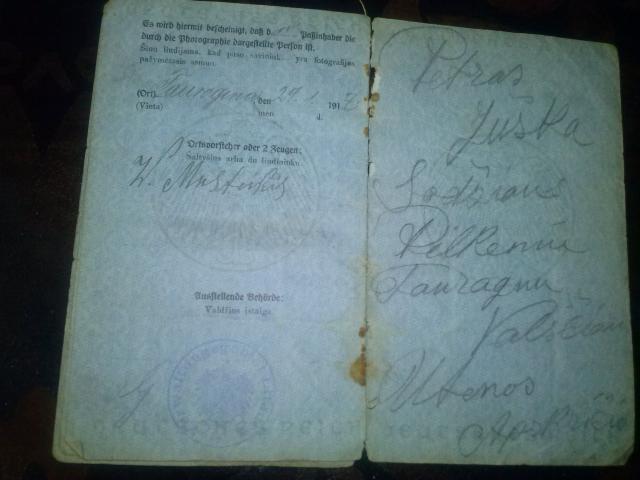 Es wird hiermit bescheinigt, daß d Paßinhaber die
durch die Photographie dargestellte Person ist.
Šiuo liudijama, kad paso savinink yra fotografijos
pažymėtasis asmuo.
(Ort) den 29. 1. 191
(Vieta) men d.
Ortsvorsteher oder 2 Zeugen:
Saltyšius arba du liudininku.
Ausstellende Behörde:
Valdžios įstaiga
Petras
Juška
Sodžiaus
Pilkenių
Tauragnų
Valsčiaus
Utenos
Apskričio